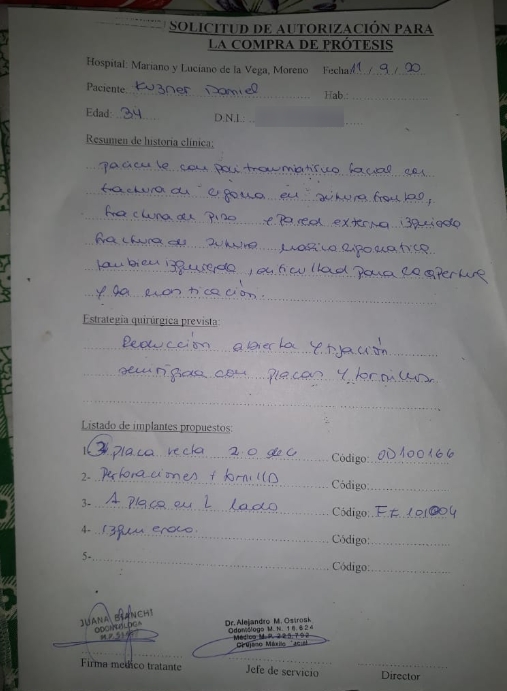 SOLICITUD DE AUTORIZACIÓN PARA
LA COMPRA DE PRÓTESIS
Hospital: Mariano y Luciano de la Vega, Moreno Fecha: 11/9/20
Paciente: Kuzner Daniel Hab.:
Edad: 34 D.N.I.:
Resumen de historia clínica:
paciente con politraumatismo facial con
fractura de cigoma en sutura frontal,
fractura de piso y pared externa izquierdo
fractura de sutura maxilo cigomatica
tambien izquierdo, dificultad para la apertura
y la masticación.
Estrategia quirúrgica prevista:
Reducción abierta y fijación
semirigida con placas y tornillos
Listado de implantes propuestos:
1- placa recta 2.0 de 4 Código: 00100166
2- perforaciones + tornillo Código:
3- 1 placa en L lado Código:
4- izquierdo. Código:
5- Código:
JUANA BIANCHI
ODONTOLOGA
M.P.
Dr. Alejandro M. Ostrosk
Odontólogo M.N. 18.624
Médico M.P.
Cirujano Máxilo
Firma médico tratante Jefe de servicio Director